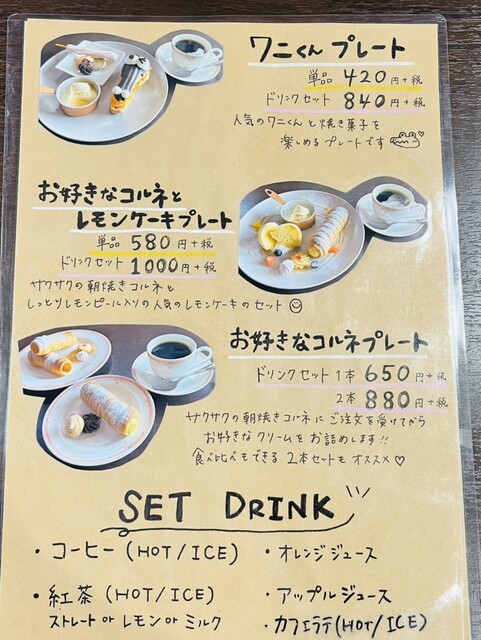 ワニくん プレート
単品 420円+税
ドリンクセット 840円+税
人気のワニくんと焼き菓子を
楽しめるプレートです
お好きなコルネと
レモンケーキプレート
単品 580円+税
ドリンクセット 1000円+税
サクサクの朝焼きコルネと
しっとりレモンピール入りの人気のレモンケーキのセット
お好きなコルネプレート
ドリンクセット 1本 650円+税
2本 880円+税
サクサクの朝焼きコルネにご注文を受けてから
お好きなクリームをお詰めします!!
食べ比べもできる 2本セットもオススメ♡
SET DRINK
・コーヒー(HOT/ICE)
・オレンジジュース
・紅茶(HOT/ICE)
ストレート or レモン or ミルク
・アップルジュース
・カフェラテ(HOT/ICE)